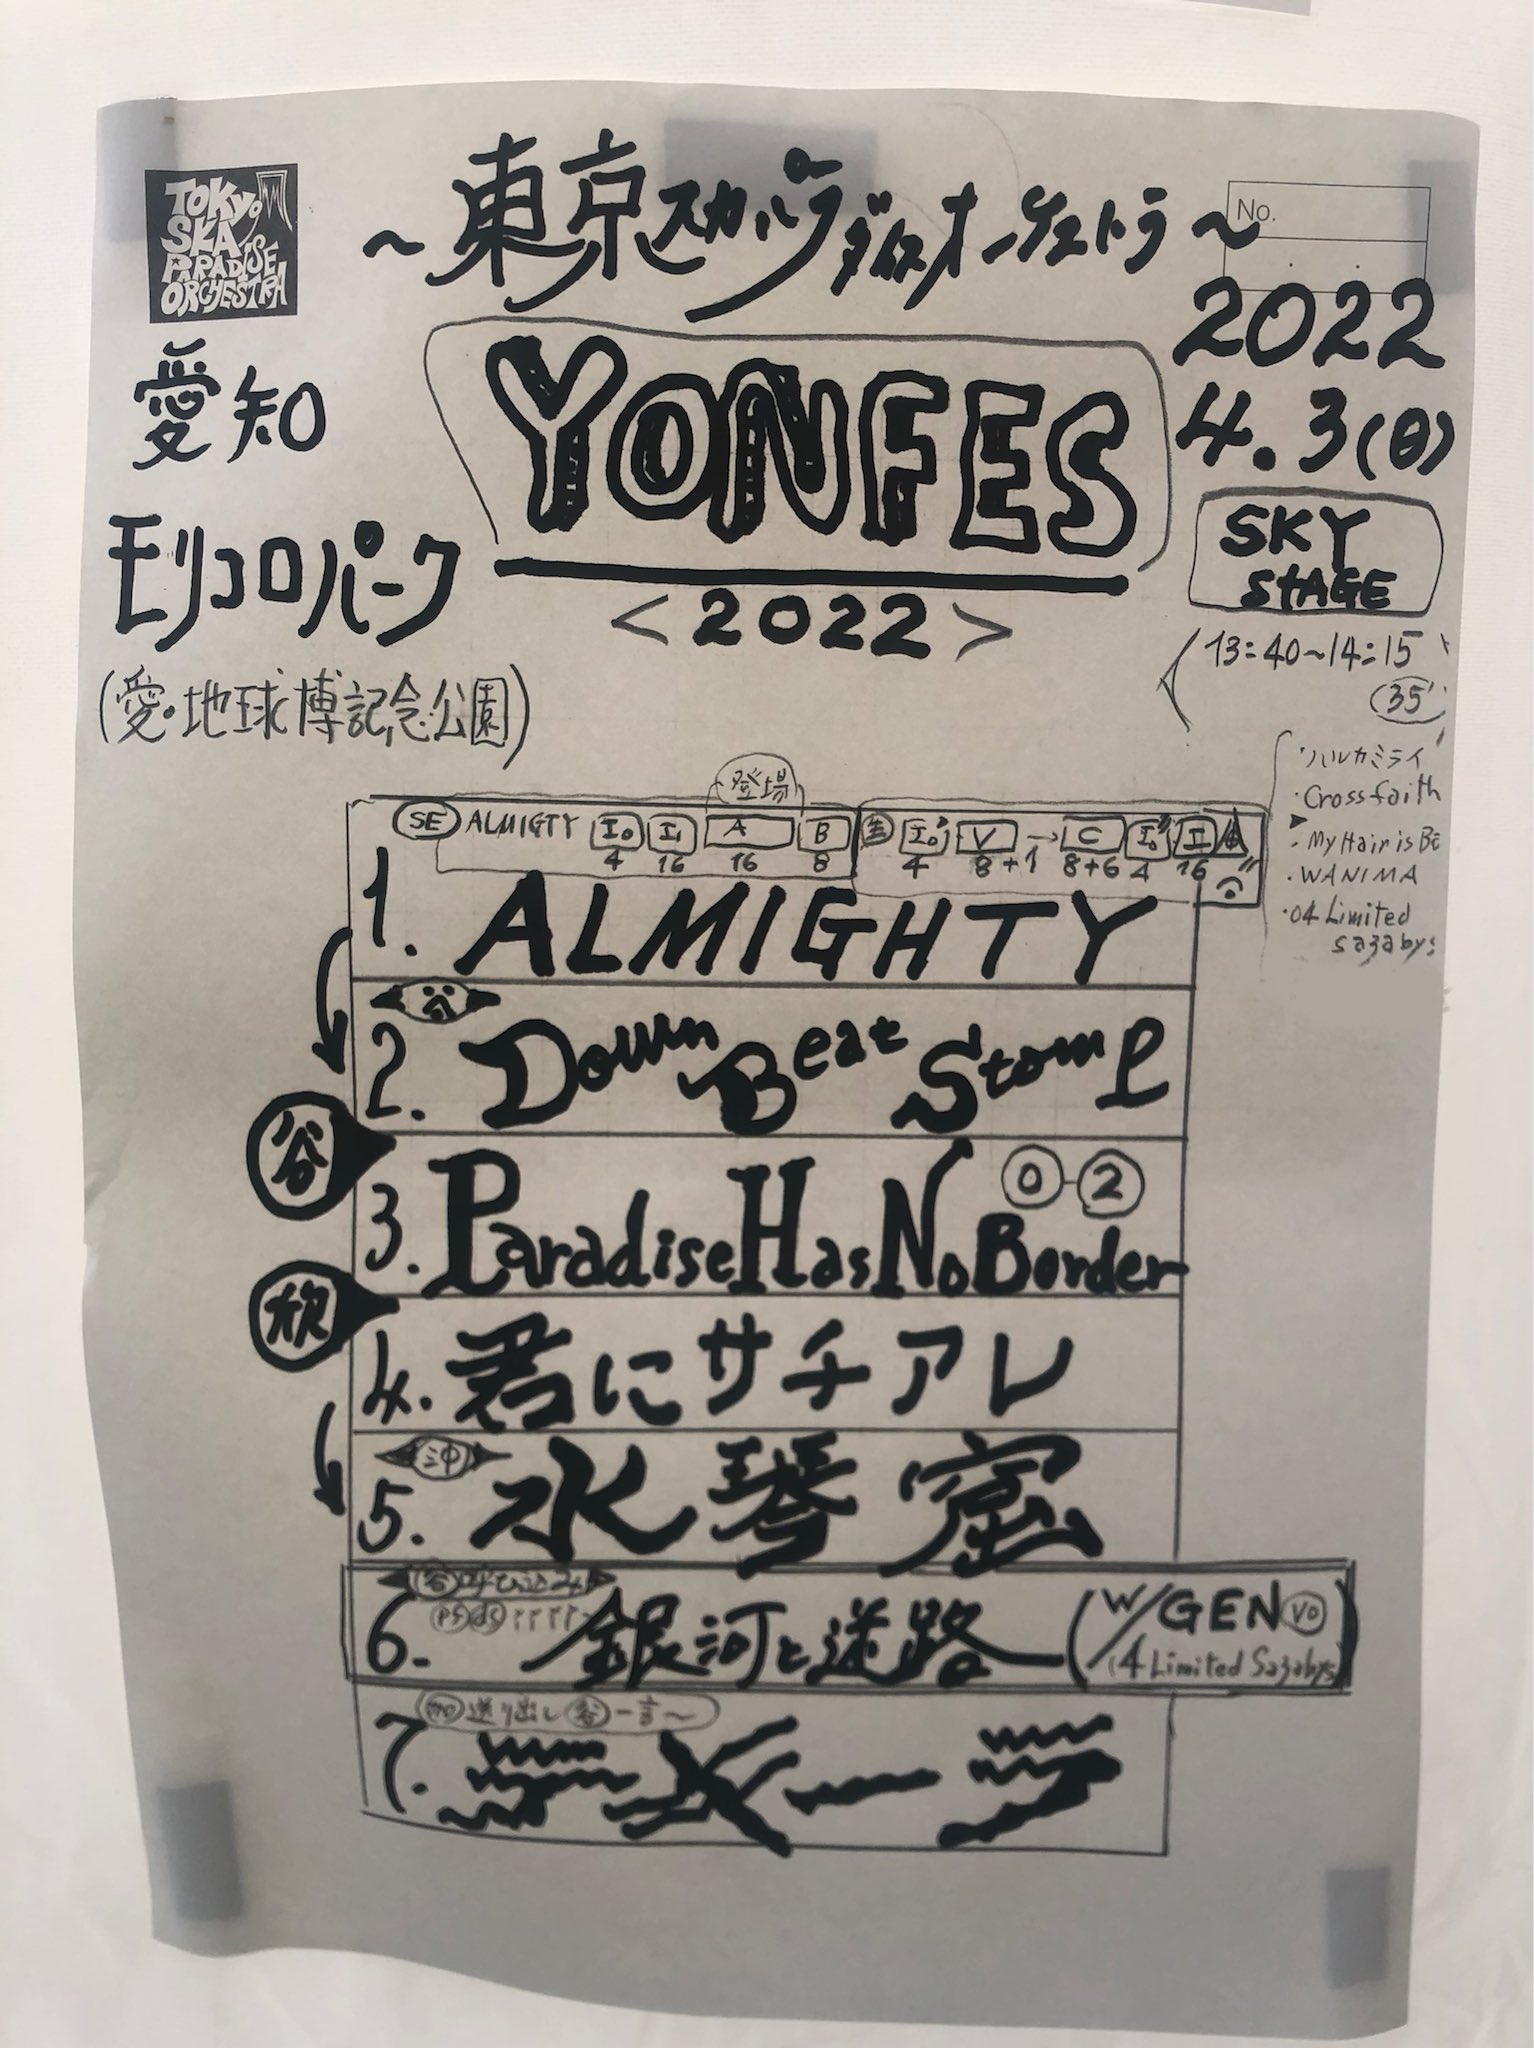 TOKYO
SKA
PARADISE
ORCHESTRA
～東京スカパラダイスオーケストラ～
No.
2022
4.3(日)
愛知
YONFES
<2022>
モリコロパーク
(愛・地球博記念公園)
SKY
STAGE
13:40~14:15
35'
・ハルカミライ
・Crossfaith
・My Hair is Be
・WANIMA
・04 Limited
Sazabys
登場
SE ALMIGTY I₀ I₁ A B 生 I₀' V → C I₀" I
4 16 16 8 4 8+1 8+6 4 16
1. ALMIGHTY
谷
2. Down Beat Stomp
谷
3. Paradise Has No Border
0-2
欣
4. 君にサチアレ
沖
5. 水琴窟
谷呼び込み
6. 銀河と迷路 (w/GEN vo
04 Limited Sazabys)
送り出し 谷一言～
7.